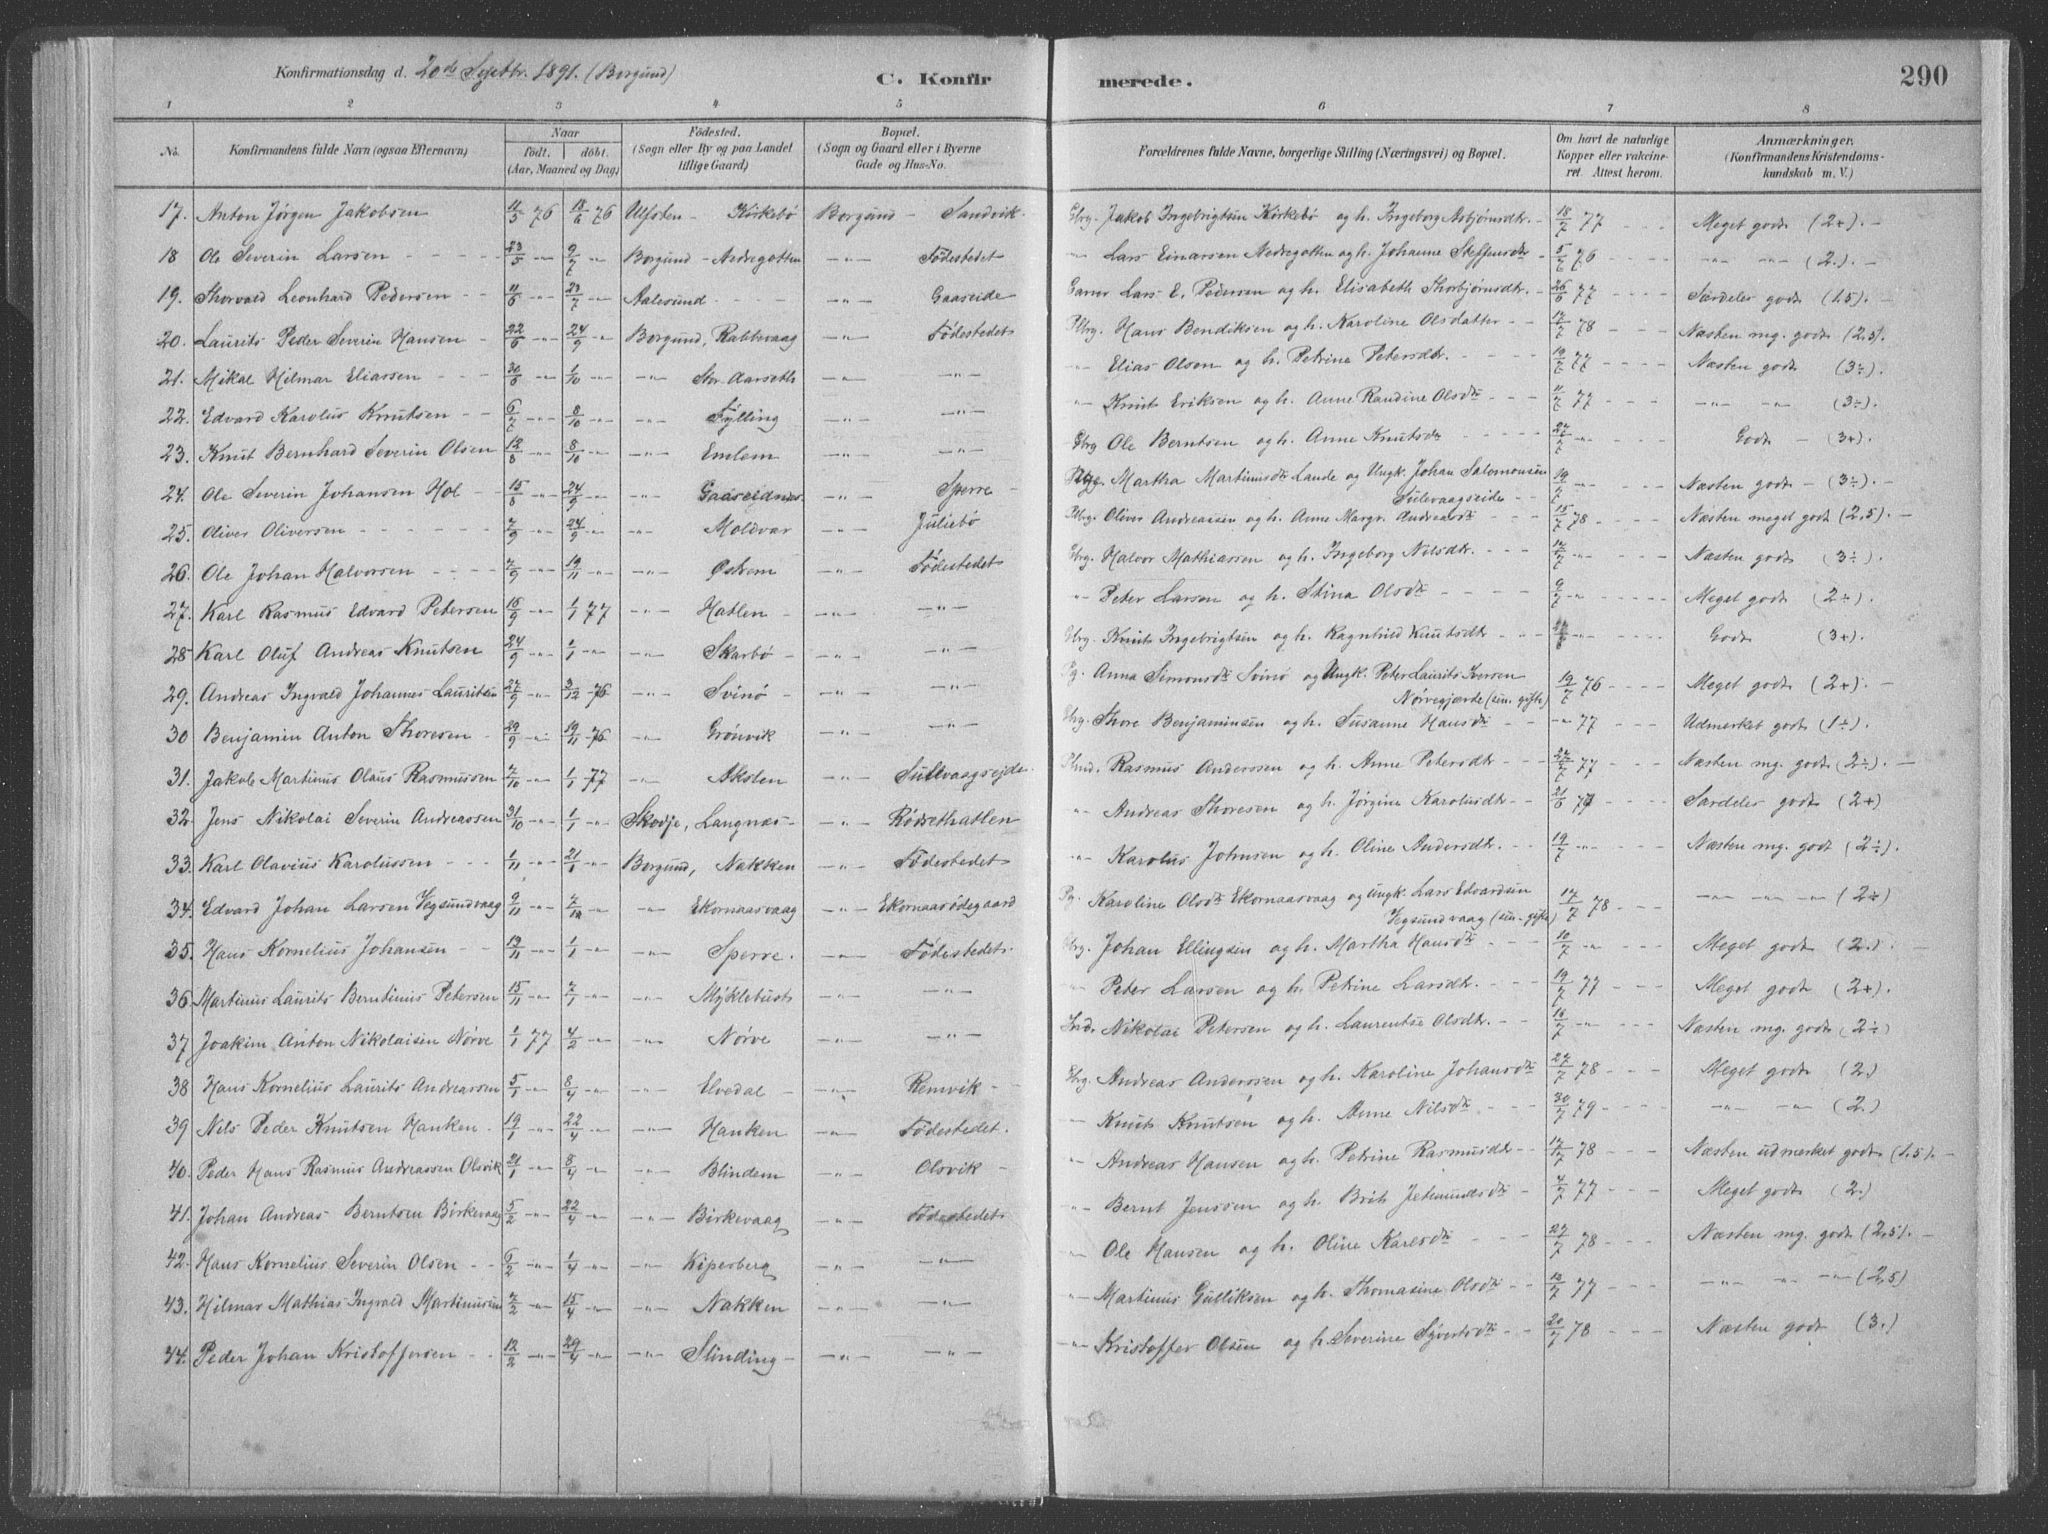 Konfirmationsdag d. 20de Septbr. 1891. (Borgund) C. Konfirmerede. 290
1 2 3 4 5 6 7 8
No. Konfirmandens fulde Navn (ogsaa Efternavn) Naar födt. döbt. (Aar, Maaned og Dag) Födested. (Sogn eller By og paa Landet tillige Gaard) Bopæl. (Sogn og Gaard eller i Byerne Gade og Hus-No. Forældrenes fulde Navne, borgerlige Stilling (Næringsvei) og Bopæl. Om havt de naturlige Kopper eller vakcineret. Attest herom. Anmærkninger. (Konfirmandens Kristendomskundskab m. V.)
17. Anton Jørgen Jakobsen 11/5 76 18/6 76 Ulfsten - Kirkebø Borgund - Sandvik. Gbrg. Jakob Ingebrigtsen Kirkebø og h. Ingeborg Asbjørnsdtr. 18/7 77 Meget godt (2+).
18 Ole Severin Larsen 23/5 -"- 9/7 -"- Borgund - Nedregotten -"- Födestedet -"- Lars Einarsen Nedregotten og h. Johanne Steffensdtr 5/7 76 -"- -"- (2.)
19. Thorvald Leonhard Pedersen 11/6 -"- 23/7 -"- Aalesund -"- Gaaseide Garver Lars E. Pedersen og h. Elisabeth Thorbjørnsdtr. 26/6 77 Særdeles godt (1.5).
20. Laurits Peder Severin Hansen 22/6 -"- 24/9 -"- Borgund, Rabbevaag -"- Födestedet Pbrg. Hans Bendiksen og h. Karoline Olsdatter 12/7 78 Næsten mg. godt (2,5).
21. Mikal Hilmar Eliassen 30/6 -"- 1/10 -"- -"- Stor. Aarseth -"- -"- -"- Elias Olsen og h. Petrine Petersdtr. 19/7 77 Næsten godt (3÷).
22. Edvard Karolus Knutsen 6/7 -"- 8/10 -"- -"- Fylling -"- -"- -"- Knut Eriksen og h. Anne Randine Olsdtr 11/7 77 -"- -"- (3÷).
23. Knut Bernhard Severin Olsen 12/8 -"- 8/10 -"- -"- Emlem -"- Gbrg Ole Berntsen og h. Anne Knutsdtr 27/7 -"- Godt - (3+)
24. Ole Severin Johansen Hol 15/8 -"- 24/9 -"- -"- Gaaseidnes -"- Sperre Martha Martinusdtr Lande og Ungk. Johan Salomonsen Sulevaagseide 19/7 -"- Næsten godt - (3÷).
25. Oliver Oliversen 7/9 -"- 24/9 -"- -"- Moldvær -"- Juliebø Pbrg. Oliver Andreassen og h. Anne Margr. Andreasdtr 15/7 78 Næsten meget godt (2,5).
26. Ole Johan Halvorsen 7/9 -"- 19/11 -"- -"- Østrem -"- Födestedet Gbrg. Halvor Mathiassen og h. Ingeborg Nilsdtr. 12/7 -"- Næsten godt (3÷)
27. Karl Rasmus Edvard Petersen 16/9 -"- 1/1 77 -"- Hatlen -"- -"- -"- Peter Larsen og h. Stina Olsdtr 9/7 -"- Meget godt (2÷).
28 Karl Oluf Andreas Knutsen 24/9 -"- 1/1 -"- -"- Skarbø -"- -"- Gbrg. Knut Ingebrigtsen og h. Ragnhild Knutsdtr -"- Godt (3+).
29. Andreas Ingvald Johannes Lauritsen 27/9 -"- 3/12 76 -"- Svinø -"- -"- Pg. Anna Simonsdtr Svinø og Ungk. Peter Laurits Iversen Nørvegjærde (sen. gifte) 19/7 76 Meget godt (2+).
30 Benjamin Anton Thoresen 29/9 -"- 19/11 76 -"- Grønvik -"- Gbrg. Thore Benjaminsen og h. Susanne Hansdtr -"- 77 Udmerket godt (1÷)
31. Jakob Martinus Olaus Rasmussen 7/10 -"- 1/1 77 -"- Akslen -"- Sulevaagseide Rasmus Anderssen og h. Anne Petersdtr 27/7 77 Næsten mg. godt (2÷).
32. Jens Nikolai Severin Andreassen 31/10 -"- 1/1 -"- Skodje, Langnæs -"- Rødsethatlen -"- Andreas Thoresen og h. Jørgine Karolusdtr 21/6 77 Særdeles godt (2+)
33. Karl Olavius Karolussen 1/11 -"- 21/1 -"- Borgund, Nakken -"- Födestedet -"- Karolus Johnsen og h. Oline Andersdtr. 19/7 -"- Næsten mg. godt (2÷).
34. Edvard Johan Larsen Vegsundvaag 9/11 -"- 7/12 -"- -"- Ekornaasvaag -"- Ekornaasødegaard Pg. Karoline Olsdtr Ekornaasvaag og Ungk Lars Edvardsen Vegsundvaag (sen. gifte) 12/7 78 -"- -"- -"- (2÷)
35. Hans Kornelius Johansen 13/11 -"- 1/1 -"- -"- Sperre. -"- Födestedet. Gbrg. Johan Ellingsen og h. Martha Hansdtr 10/7 -"- Meget godt (2.)
36 Martinus Laurits Berntinus Petersen 15/11 -"- 7/1 -"- -"- Myklebust -"- -"- -"- Peter Larsen og h. Petrine Larsdtr. 19/7 77 Meget godt (2+).
37 Joakim Anton Nikolaisen Nørve 1/1 77 4/2 -"- -"- Nørve -"- -"- Ind. Nikolai Petersen og h. Laurentse Olsdtr. 18/7 -"- Næsten mg. godt (2÷)
38 Hans Kornelius Laurits Andreassen 5/1 -"- 8/4 -"- -"- Elvedal -"- Remvik Gbrg. Andreas Anderssen og h. Karoline Johansdtr 27/7 78 Meget godt (2.)
39 Nils Peder Knutsen Hanken 19/1 -"- 22/4 -"- -"- Hanken -"- Födestedet. -"- Knut Knutsen og h. Anne Nilsdtr 30/7 79 -"- -"- (2.)
40. Peder Hans Rasmus Andreassen Olsvik 21/1 -"- 8/4 -"- -"- Blindem -"- Olsvik -"- Andreas Hansen og h. Petrine Rasmusdtr 12/7 78 Næsten udmerket godt (1,5).
41. Johan Andreas Berntsen Birkevaag 5/2 -"- 22/4 -"- -"- Birkevaag -"- Födestedet -"- Bernt Jenssen og h. Brit Jetmundsdtr 4/7 77 Meget godt (2.)
42. Hans Kornelius Severin Olsen 6/2 -"- 1/4 -"- -"- Kipersberg -"- -"- -"- Ole Hansen og h. Oline Karlsdtr 27/7 78 Næsten mg. godt (2,5).
43. Hilmar Mathias Ingvald Martinussen 7/2 -"- 15/4 -"- -"- Nakken -"- -"- -"- Martinus Gulliksen og h. Thomasine Olsdtr 12/7 77 -"- -"- -"- (2,5)
44. Peder Johan Kristoffersen 12/2 -"- 29/4 -"- -"- Slinding -"- -"- -"- Kristoffer Olsen og h. Severine Syvertsdtr 20/7 78 Næsten godt (3.)